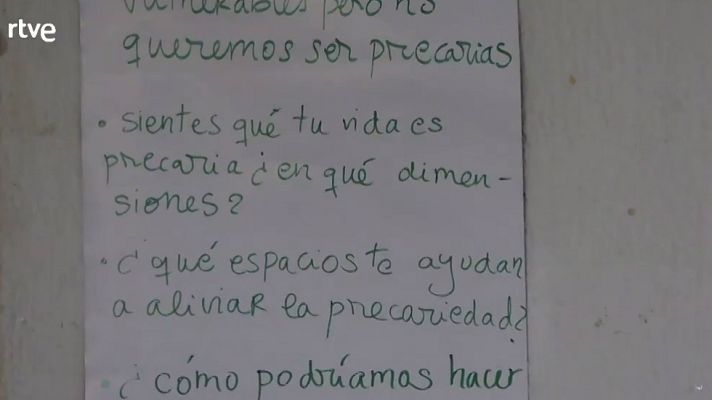 rtve
vulnerables pero no
queremos ser precarias
• sientes qué tu vida es
precaria ¿en qué dimen-
siones?
• ¿qué espacios te ayudan
a aliviar la precariedad?
• ¿cómo podríamos hacer